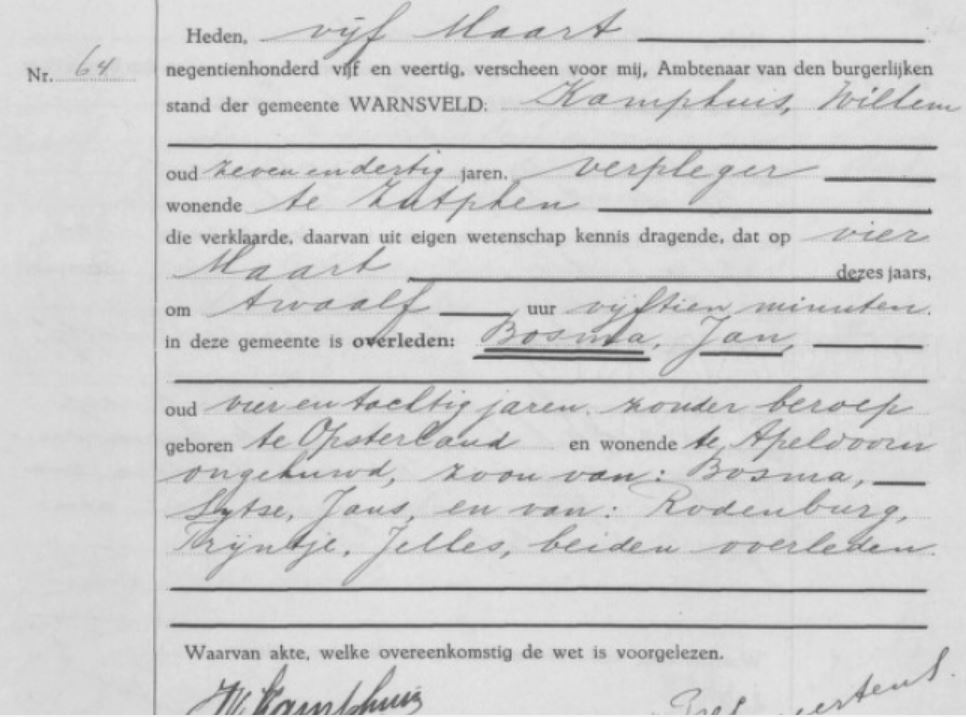 Heden, vijf Maart
Nr. 64
negentienhonderd vijf en veertig, verscheen voor mij, Ambtenaar van den burgerlijken
stand der gemeente WARNSVELD: Kamphuis, Willem
oud zeven en dertig jaren, verpleger
wonende te Zutphen
die verklaarde, daarvan uit eigen wetenschap kennis dragende, dat op vier
Maart, dezes jaars,
om twaalf uur vijftien minuten.
in deze gemeente is overleden: Bosma, Jan,
oud vier en tachtig jaren. zonder beroep
geboren te Opsterland en wonende te Apeldoorn
ongehuwd, zoon van: Bosma,
Sytse, Jans, en van: Rodenburg,
Trijntje, Jelles, beiden overleden.
Waarvan akte, welke overeenkomstig de wet is voorgelezen.
W. Kamphuis